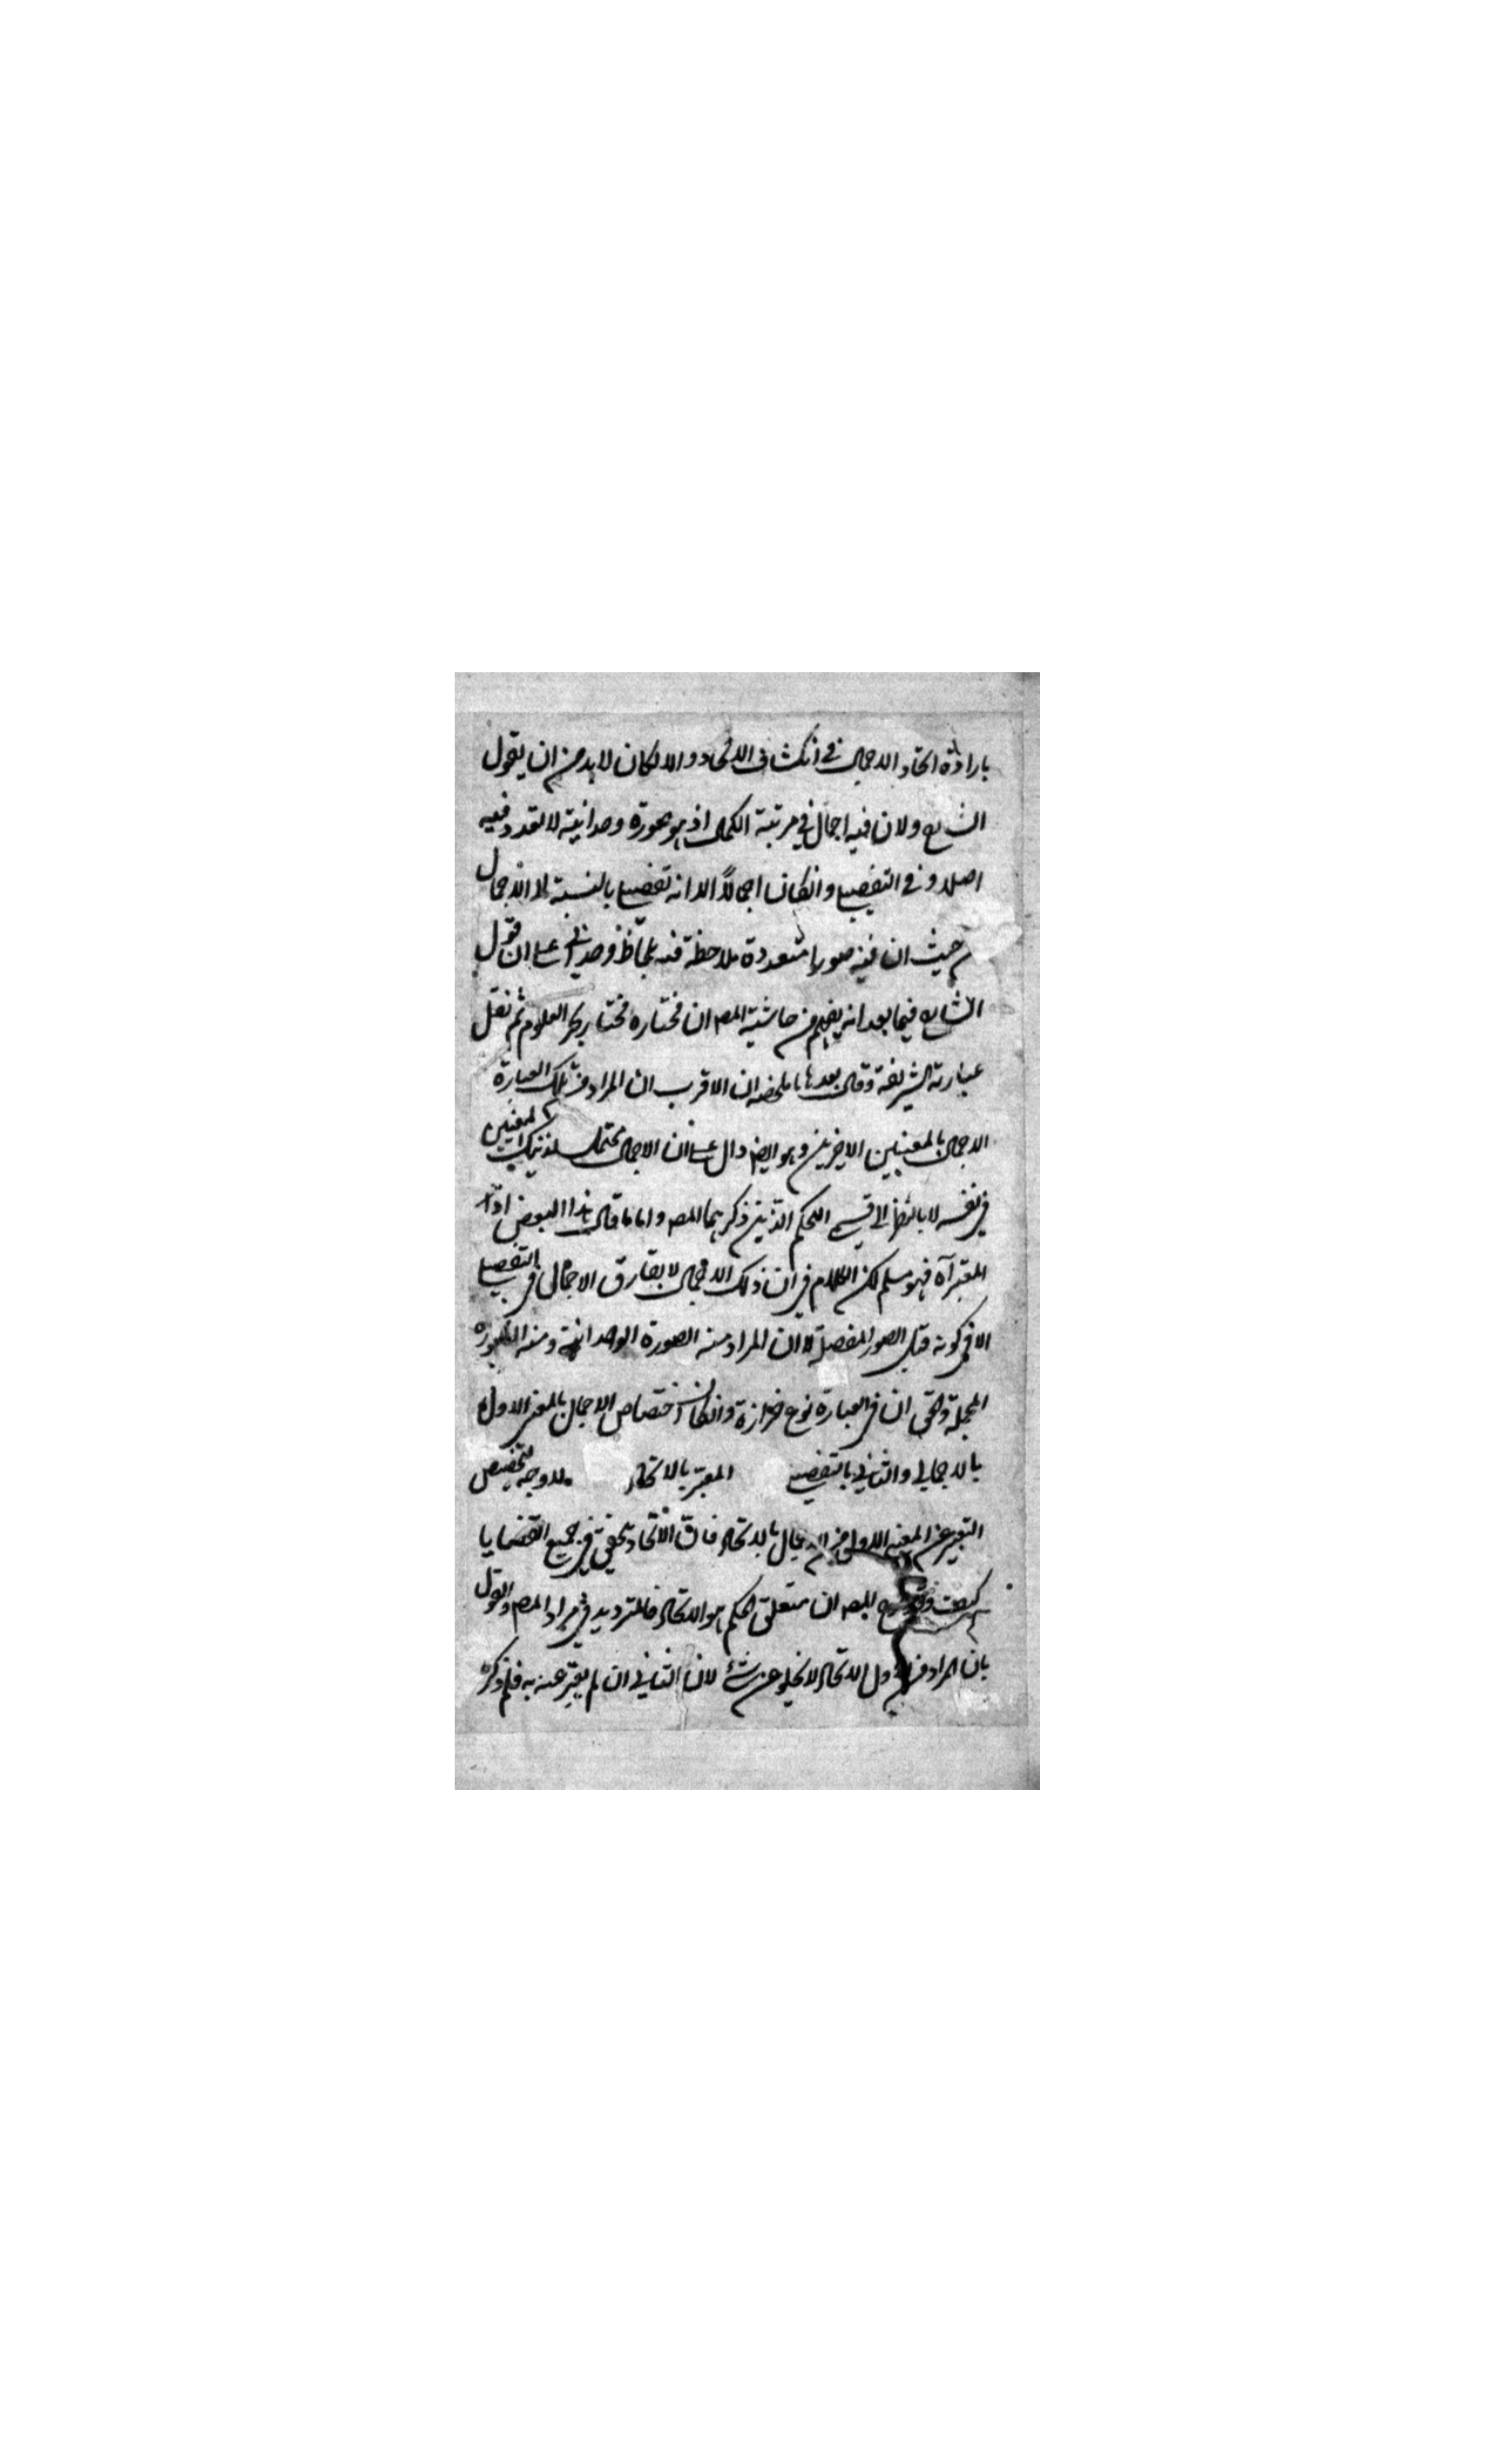 بارادة اتحاد الاجمالي في انكشاف الاتحاد والا لكان لا بد من ان يقول
الشارح ولان فيه اجمال في مرتبة الكمال اذ هو بصورة وحدانية لا تعدد فيه
اصلا وفي التفصيل وانكان اجمالاً الا انه تفصيل بالنسبة الى الاجمال
من حيث ان فيه صورا متعددة ملاحظة فيه بلحاظ وحداني على ان قول
الشارح فيما بعد انه يفهم من حاشية المصـ ان مختاره مختار بحر العلوم ثم نقل
عبارته الشريفة وقال بعدها ما ملخصه ان الاقرب ان المراد من تلك العبارة
الاجمال بالمعنيين الاخيرين وهو ايضـ دال على ان الاجمال محتمل لذينك المعنيين
في نفسه لا بالنظر الى قسمي الحكم الذين ذكرهما المصـ واما ما قال هذا البعض
المعتبر آه فهو مسلم لكن الكلام في ان ذلك الاجمال لا يفارق الاجمال في التفصيل
الا في كونه قبل الصور المفصلة ان المراد منه الصورة الوحدانية ومنه الصورة
المجملة والحق ان في العبارة نوع حزازة وانكان اختصاص الاجمال بالمعنى الاول
بالاجمالي والثاني بالتفصيلي المعبر بالاتحاد فلا وجه لتخصيص
التعبير عن المعنى الاول من الاجمال بالاتحاد فان الاتحاد تحقق في جميع القضايا
كيف المصـ ان متعلق الحكم هو الاتحاد فالترديد في مراد المصـ والقول
بان المراد من الاول الاتحاد لا يخلو عن شئ لان الثاني ان لم يعبر عنه به فلم ذكره